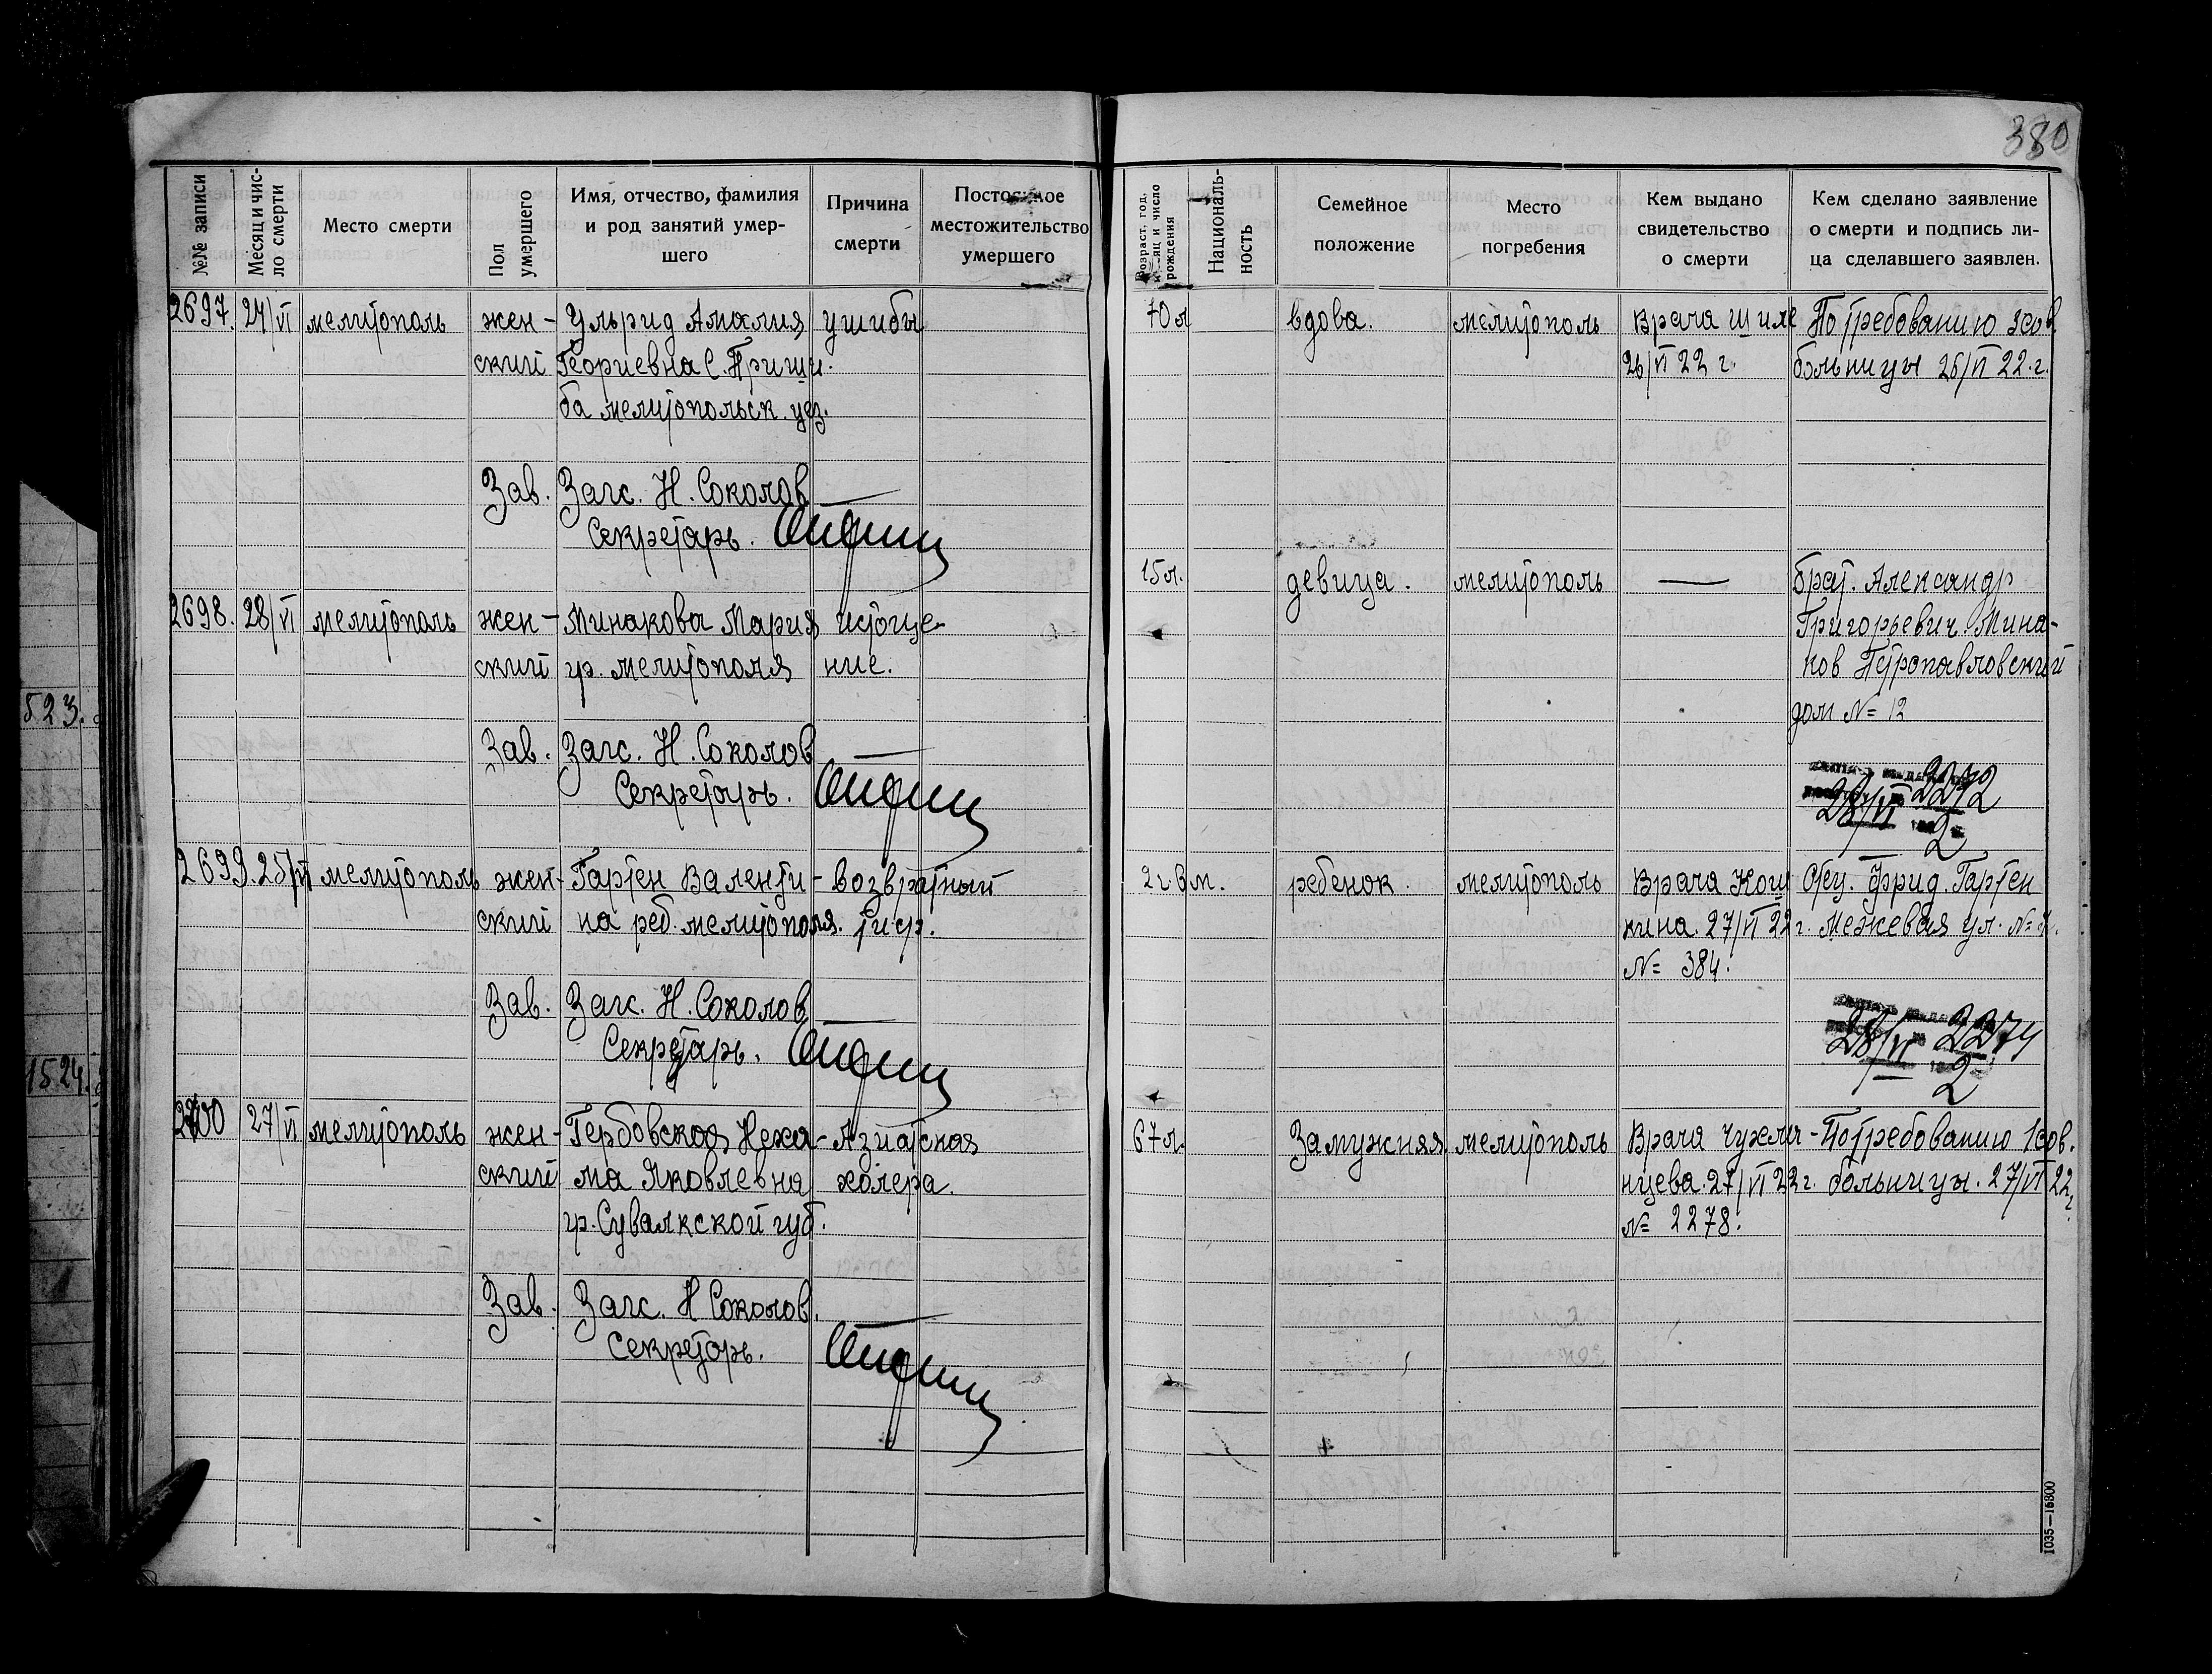 380
№№ записи
Месяц и чис-
ло смерти
Место смерти
Пол
умершего
Имя, отчество, фамилия
и род занятий умер-
шего
Причина
смерти
Постоянное
местожительство
умершего
Возраст, год,
м-сяц и число
рождения
Националь-
ность
Семейное
положение
Место
погребения
Кем выдано
свидетельство
о смерти
Кем сделано заявление
о смерти и подпись ли-
ца сделавшего заявлен.
2697. 24/VI мелитополь жен- Ульрид Амалия ушибы 70 л вдова. мелитополь Врача Шиле По требованию
ский Георгиевна С. Приши. 26/VI 22 г. больницы 26/VI 22.г.
ба мелитопольск. уез.
Зав. Загс. Н. Соколов
Секретарь.
15 л. девица. мелитополь — брат. Александр
2698. 28/VI мелитополь жен- Минакова Мария истоще- Григорьевич Мина-
ский гр. мелитополя ние. ков Петропавловский
дом № 12
Зав. Загс. Н. Соколов
Секретарь.
28/VI 2272
2
2699. 25/VI мелитополь жен- Гартен Валенти- возвратный 2 г. 8 м. ребенок. мелитополь Врача Кош Отец. Фрид. Гартен
ский на реб. мелитополя. тиф. кина. 27/VI 22 г. Межевая ул. №
№ 384.
Зав. Загс. Н. Соколов
Секретарь.
28/VI 2274
2
2700 27/VI мелитополь жен- Гербовская Неха- Азиатская 67 л. Замужняя мелитополь Врача Чужми- По требованию 1 сов.
ский ма Яковлевна холера. нцева. 27/VI 22 г. больницы. 27/VI 22 г.
гр. Сувалкской губ. № 2278.
Зав. Загс. Н Соколов.
Секретарь.
523.
1524.
1035—15300